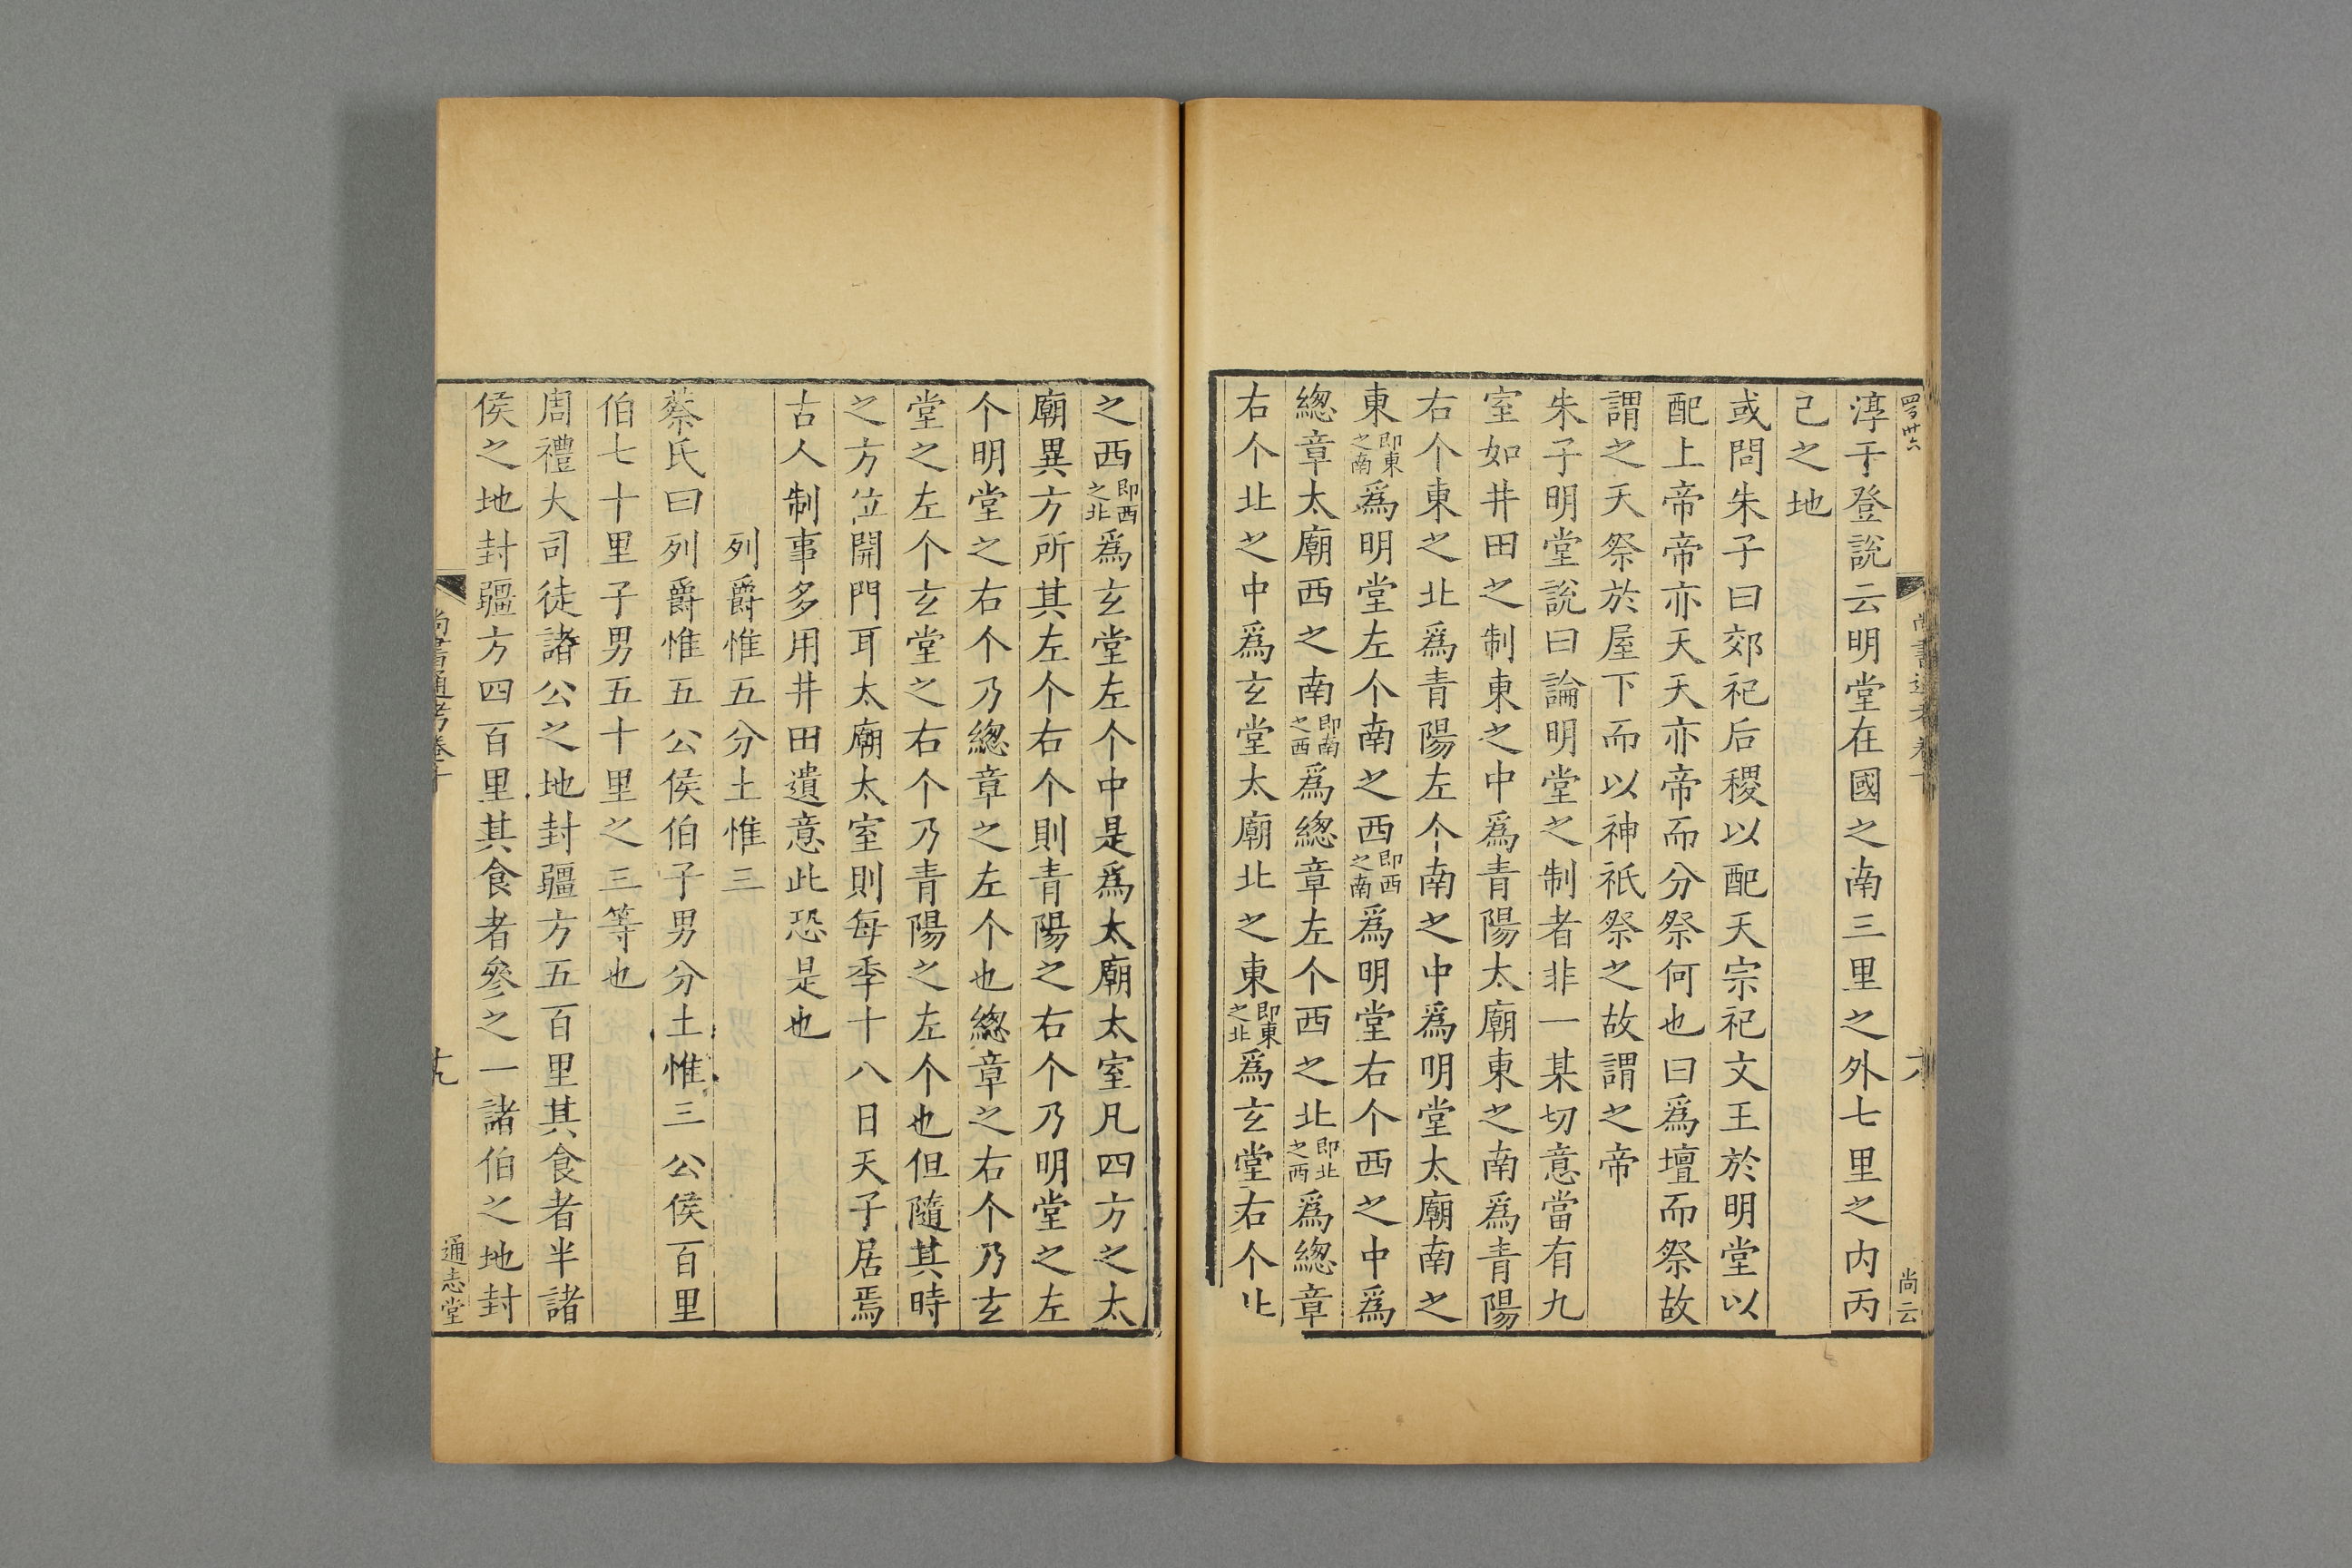 淳于登說云明堂在國之南三里之外七里之内丙
己之地
或問朱子曰郊祀后稷以配天宗祀文王於明堂以
配上帝帝亦天天亦帝而分祭何也曰爲壇而祭故
謂之天祭於屋下而以神祇祭之故謂之帝
朱子明堂說曰論明堂之制者非一某切意當有九
室如井田之制東之中爲青陽太廟東之南爲青陽
右个東之北爲青陽左个南之中爲明堂太廟南之
東即東之南爲明堂左个南之西即西之南爲明堂右个西之中爲
緫章太廟西之南即南之西爲緫章左个西之北即北之西爲緫章
右个北之中爲玄堂太廟北之東即東之北爲玄堂右个北
之西即西之北爲玄堂左个中是爲太廟太室凡四方之太
廟異方所其左个右个則青陽之右个乃明堂之左
个明堂之右个乃緫章之左个也緫章之右个乃玄
堂之左个玄堂之右个乃青陽之左个也但隨其時
之方位開門耳太廟太室則每季十八日天子居焉
古人制事多用井田遺意此恐是也
列爵惟五分土惟三
蔡氏曰列爵惟五公侯伯子男分土惟三公侯百里
伯七十里子男五十里之三等也
周禮大司徒諸公之地封疆方五百里其食者半諸
侯之地封疆方四百里其食者參之一諸伯之地封
尚書通考卷十
十九
通志堂
尚云